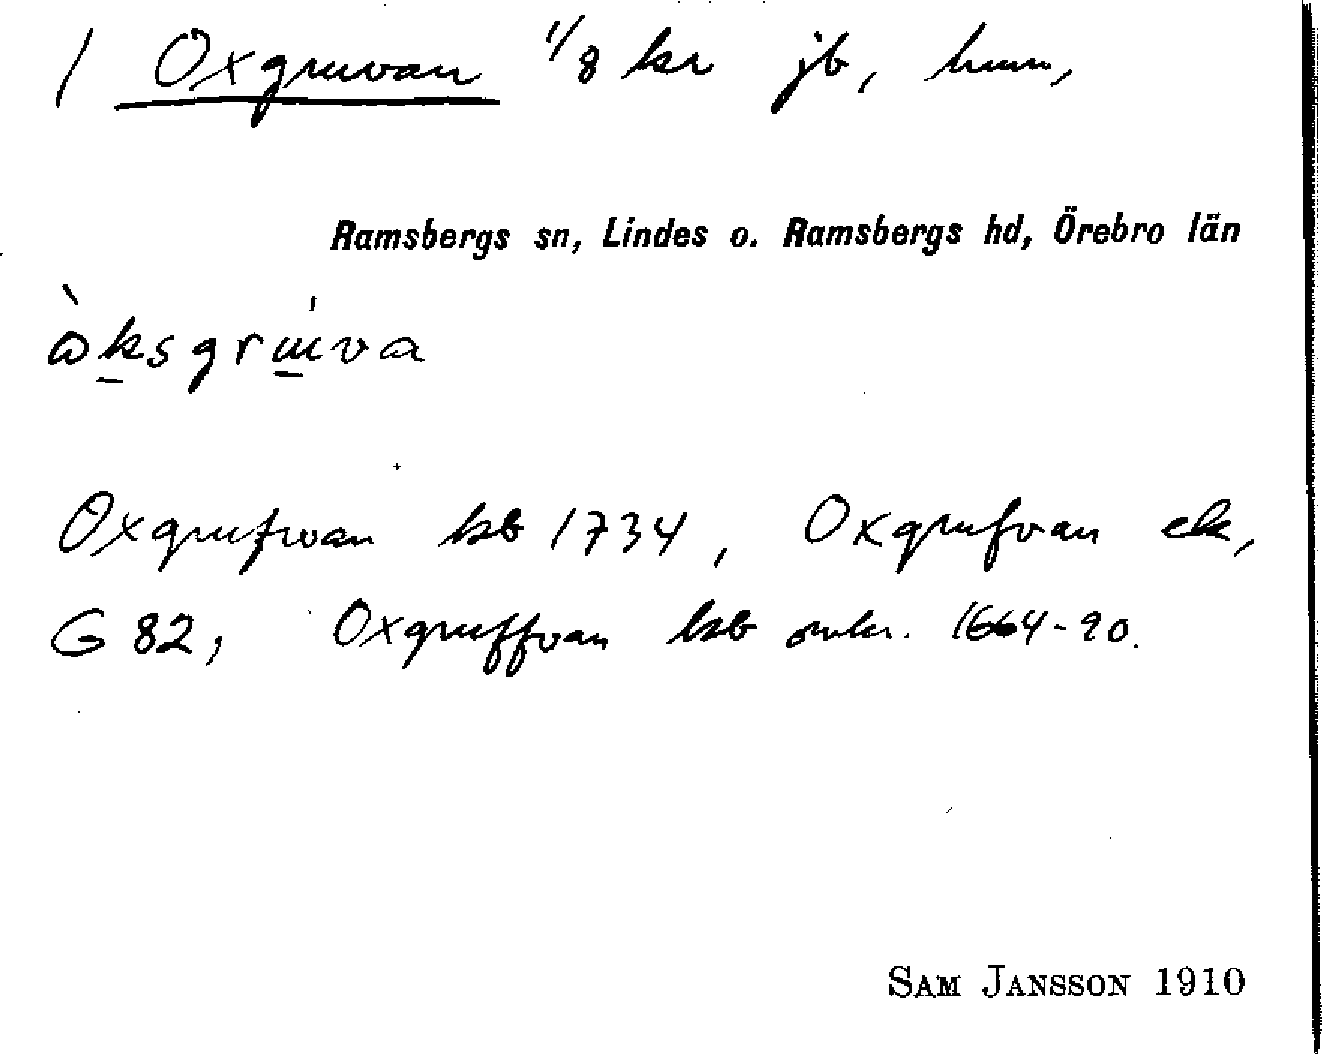 / Oxgruvan 1/8 kr jb, hmm,
Ramsbergs sn, Lindes o. Ramsbergs hd, Örebro län
Oxgrufwan kb 1734, Oxgrufvan ek,
G 82; Oxgruffvan kb omkr. 1664-90.
SAM JANSSON 1910